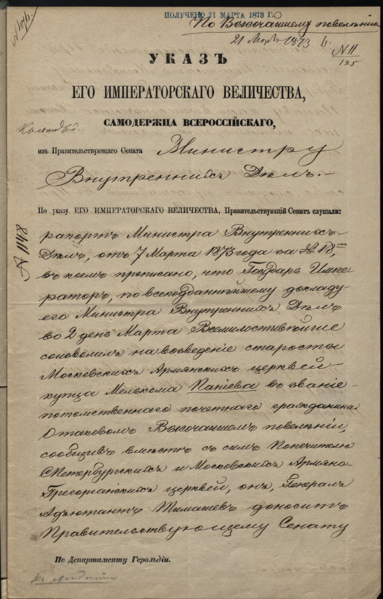 ПОЛУЧЕНО 21 МАРТА 1873 Г.
По Высочайшему повелѣнію
21 Марта 1873 г.
N 11
УКАЗЪ
ЕГО ИМПЕРАТОРСКАГО ВЕЛИЧЕСТВА,
САМОДЕРЖЦА ВСЕРОССІЙСКАГО,
изъ Правительствующаго Сената Министру
Внутреннихъ Дѣлъ.
По указу ЕГО ИМПЕРАТОРСКАГО ВЕЛИЧЕСТВА, Правительствующій Сенатъ слушали:
рапортъ Министра Внутреннихъ
Дѣлъ, отъ 7 Марта 1873 года за №
въ коемъ прописано, что Государь Импе
раторъ, по всеподданнѣйшему докладу
его Министра Внутреннихъ Дѣлъ
во 2 день Марта Всемилостивѣйше
соизволилъ на возведеніе старосты
Московскихъ Армянскихъ церквей
купца Мелекома Паніева въ званіе
потомственнаго почетнаго гражданина.
О таковомъ Высочайшемъ повелѣніи,
сообщивъ вмѣстѣ съ симъ Попечителю
СПетербургскихъ и Московскихъ Армяно
Грегоріанскихъ церквей, онъ, Генералъ
Адъютантъ Тимашевъ доноситъ
Правительствующему Сенату
По Департаменту Герольдіи.